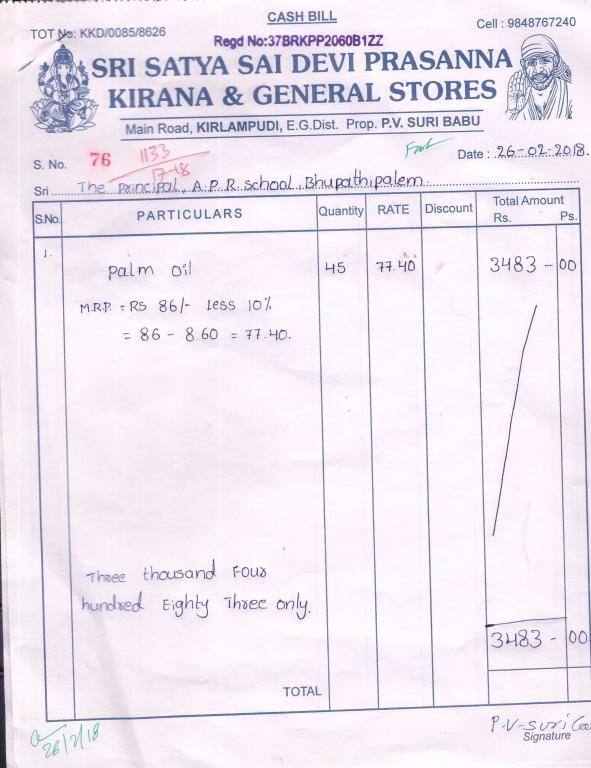 CASH BILL
TOT No: KKD/0085/8626
Cell : 9848767240
Regd No:37BRKPP2060B1ZZ
SRI SATYA SAI DEVI PRASANNA
KIRANA & GENERAL STORES
Main Road, KIRLAMPUDI, E.G.Dist. Prop. P.V. SURI BABU
S. No. 76 1133
17-18
Date : 26-02-2018.
Sri The Principal, A.P.R. School, Bhupathipalem
S.No. PARTICULARS Quantity RATE Discount Total Amount
Rs. Ps.
1. Palm Oil 45 77.40 3483 - 00
M.R.P. = RS 86/- Less 10%
= 86 - 8.60 = 77.40.
Three thousand Four
hundred Eighty Three only.
3483 - 00
TOTAL
26/2/18
P.V-Suri
Signature